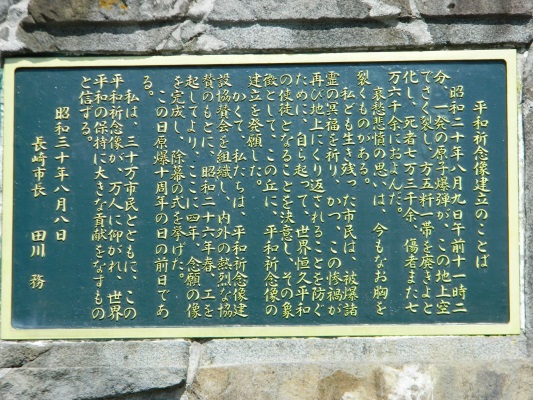 平和祈念像建立のことば
昭和二十年八月九日午前十一時二
分、一発の原子爆弾が、この地上空
でさく裂し、方五粁一帯を廃きよと
化し、死者七万三千余、傷者また七
万六千余におよんだ。
哀愁悲情の思いは、今もなお胸を
裂くものがある。
私ども生き残った市民は、被爆諸
霊の冥福を祈り、かつ、この惨禍が
再び地上にくり返されることを防ぐ
ために、自ら起って、世界恒久平和
の使徒となることを決意し、その象
徴として、この丘に、平和祈念像の
建立を発願した。
かくて、私たちは、平和祈念像建
設協賛会を組織し、内外の熱烈な協
賛のもとに、昭和二十六年春、工を
起してより、ここに四年、念願の像
を完成し、除幕の式を挙げた。
この日原爆十周年の日の前日であ
る。
私は、三十万市民とともに、この
平和祈念像が、万人に仰がれ、世界
平和の保持に大きな貢献をなすもの
と信ずる。
昭和三十年八月八日
長崎市長 田川 務